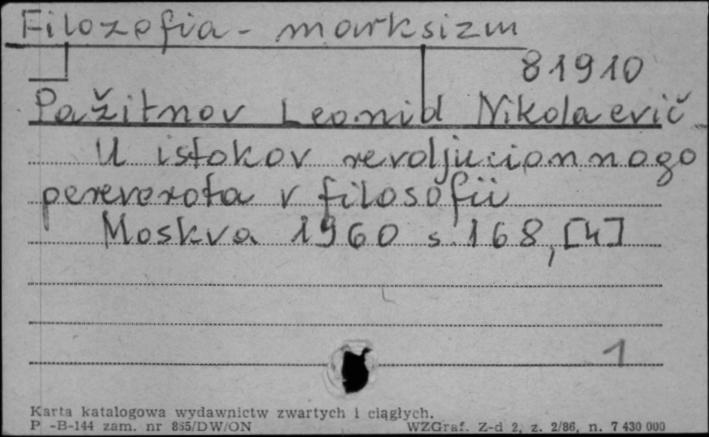 Filozofia - marksizm
81910
Pažitnov Leonid Nikolaevič
U istokov revoljucionnogo
perevorota v filosofii
Moskva 1960 s. 168, [4]
1
Karta katalogowa wydawnictw zwartych i ciągłych.
P -B-144 zam. nr 855/DW/ON WZGraf. Z-d 2, z. 2/86, n. 7 430 000